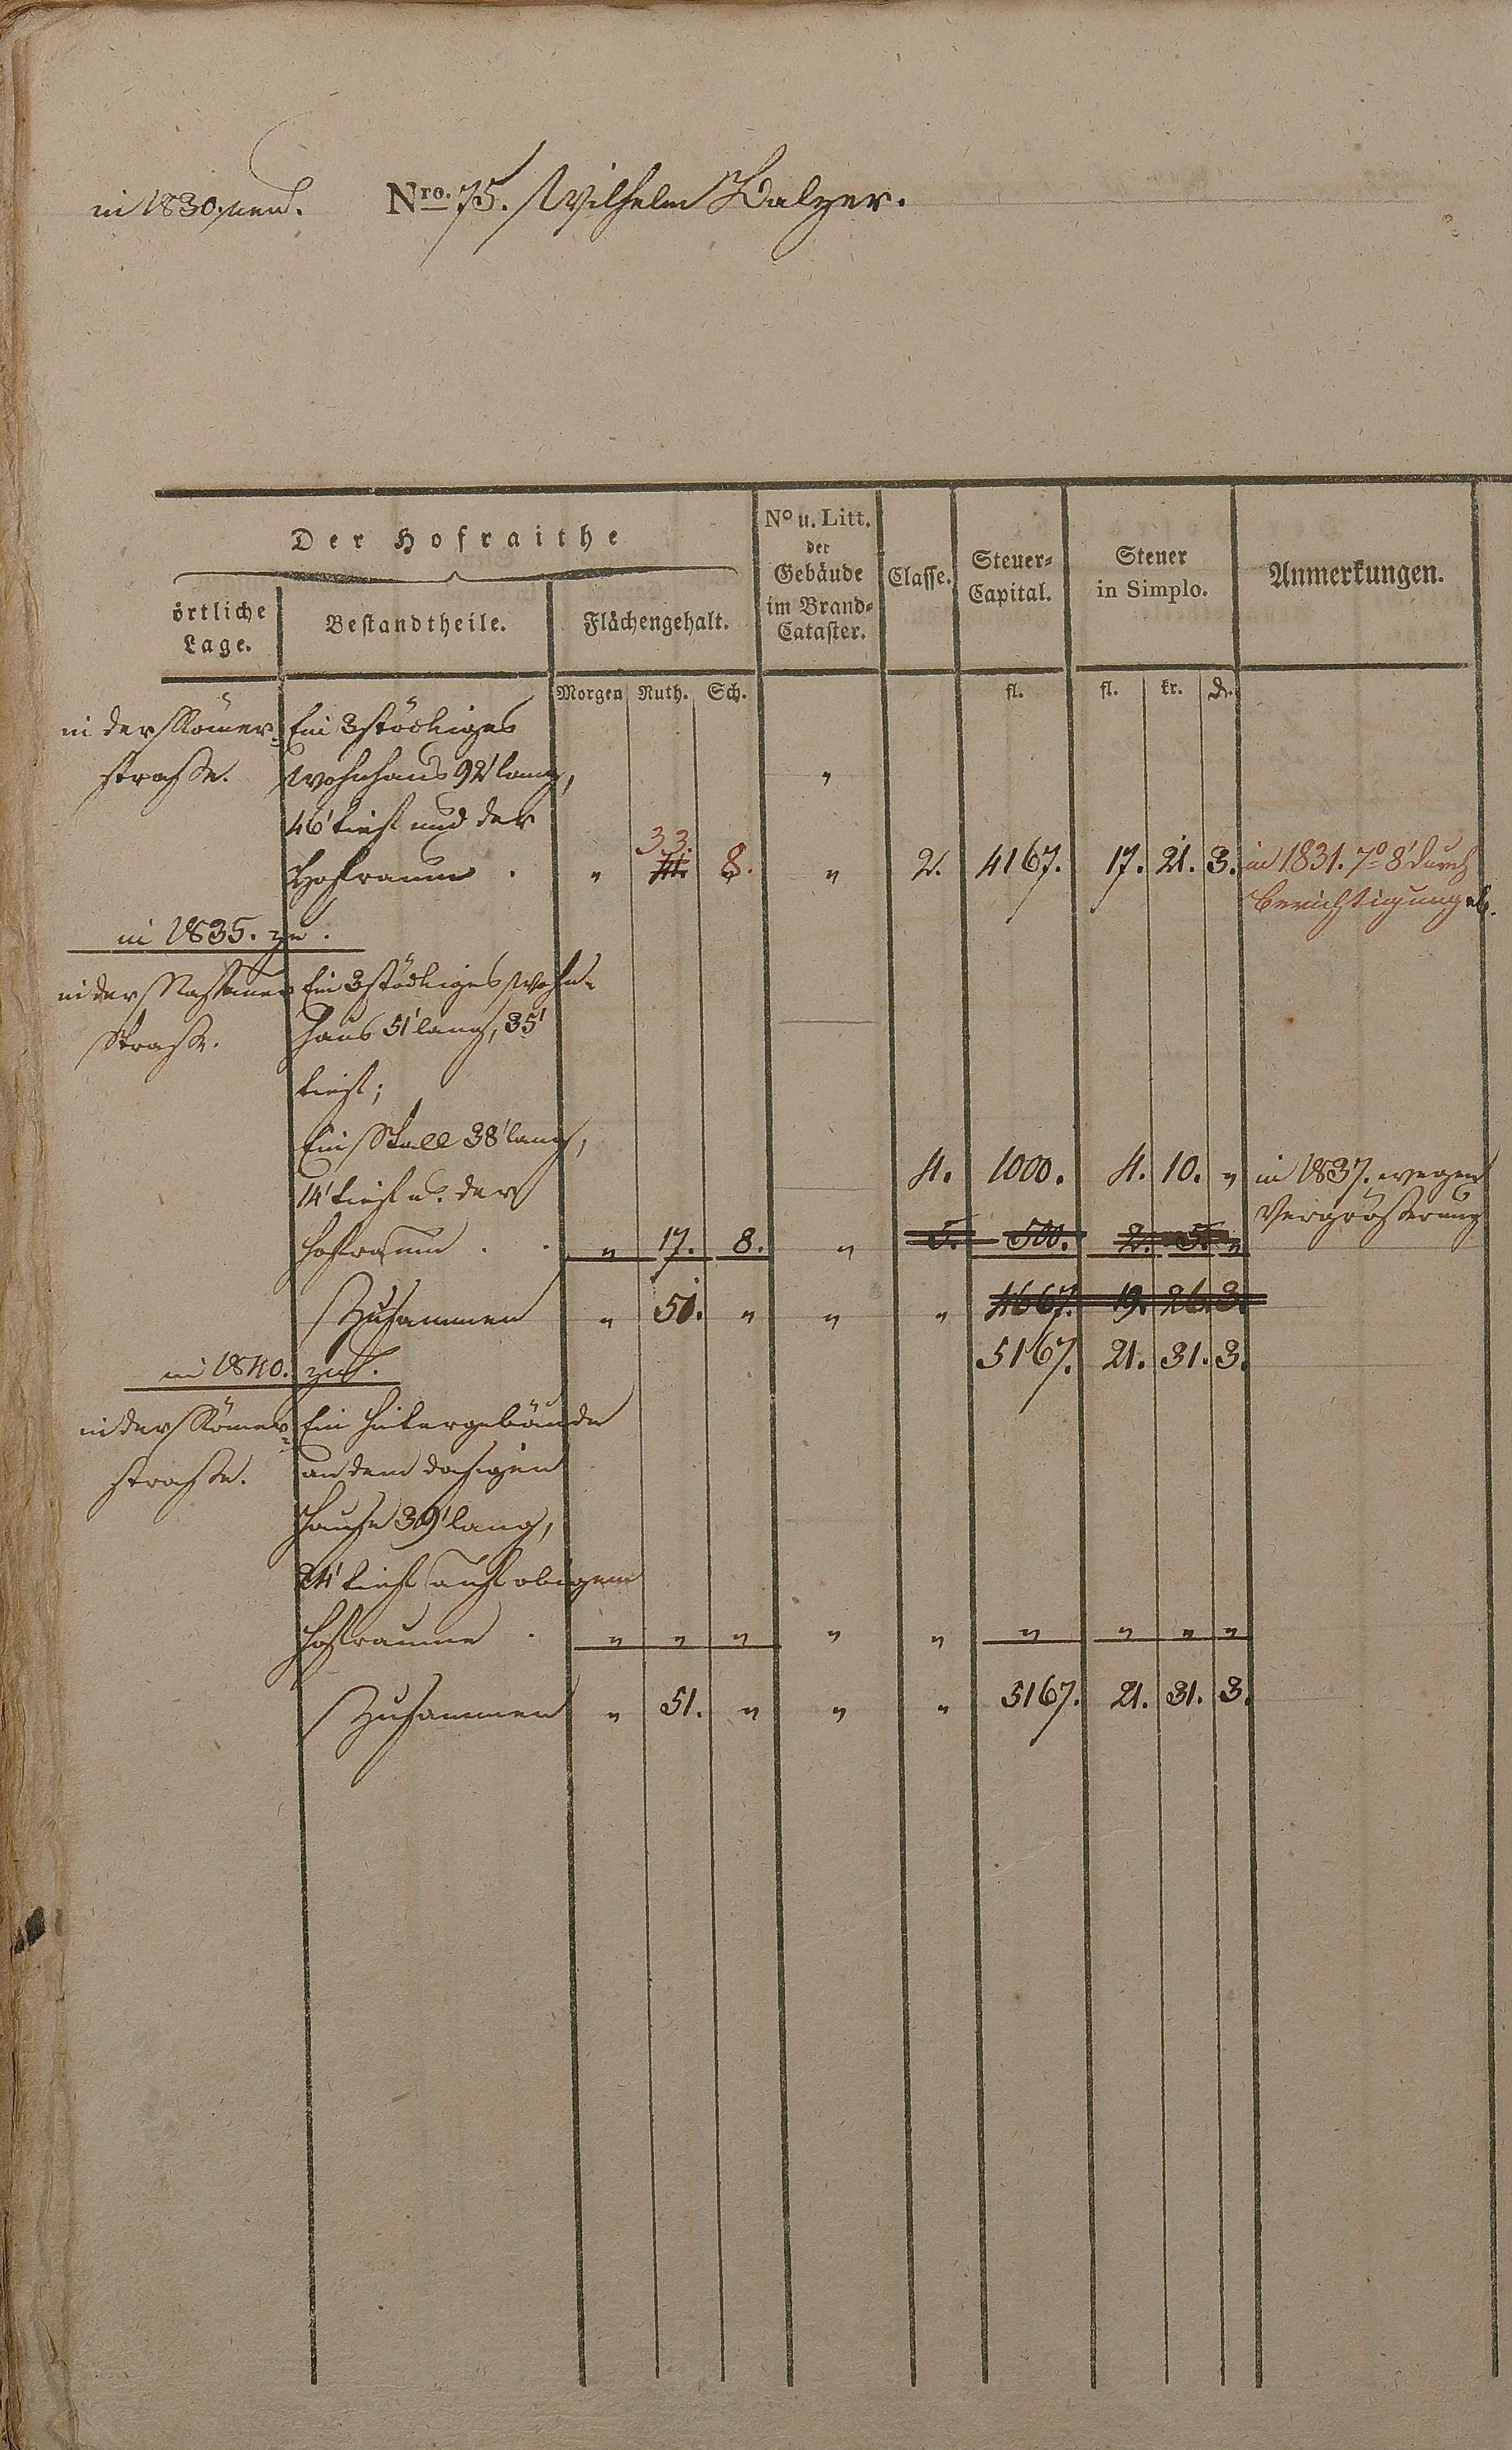 in 1830. neu. Nro. 75. Wilhelm Balzer.
Der Hofraithe
örtliche Lage.
Bestandtheile.
Flächengehalt.
No u. Litt. der Gebäude im Brand-Cataster.
Classe.
Steuer-Capital.
Steuer in Simplo.
Anmerkungen.
Morgen Ruth. Sch. fl. fl. kr. d.
in der Römer- Ein 3stöckiges
strasse. Wohnhaus 92' lang, "
46' tief und der
33.
Hofraum . " 41. 8. " 2. 4167. 17. 21. 3. in 1831. 7° 8' durch
Berichtigung ab.
in 1835. zu.
in der Nassauer Ein 3stöckiges Wohn-
Strasse. haus 51' lang, 35'
tief;
Ein Stall 38' lang,
14' tief u. der 4. 1000. 4. 10. " in 1837. wegen
Vergrösserung
Hofraum . . " 17. 8. " 5. 500. 2. 5. "
Zusammen " 51. " " " 4667. 19. 26. 3.
5167. 21. 31. 3.
in 1840. zu.
in der Römer- Ein Hintergebäude
strasse. an dem dasigen
Hause 39' lang,
24' tief auf obigem
Hofraume . " " " " " " " " "
Zusammen " 51. " " " 5167. 21. 31. 3.